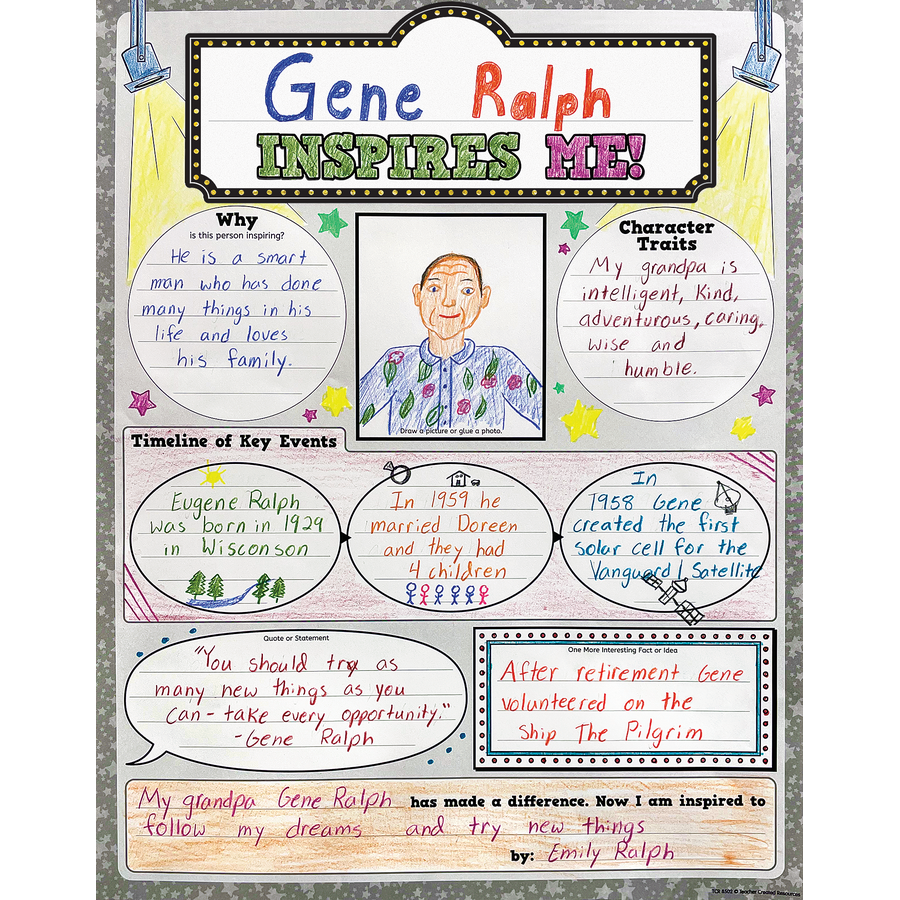 Gene Ralph
INSPIRES ME!
Why
is this person inspiring?
He is a smart
man who has done
many things in his
life and loves
his family.
Draw a picture or glue a photo.
Character
Traits
My grandpa is
intelligent, Kind,
adventurous, caring,
wise and
humble.
Timeline of Key Events
Eugene Ralph
was born in 1929
in Wisconson
In 1959 he
married Doreen
and they had
4 children
In
1958 Gene
created the first
solar cell for the
Vanguard 1 Satellite
Quote or Statement
"You should try as
many new things as you
can - take every opportunity."
- Gene Ralph
One More Interesting Fact or Idea
After retirement Gene
volunteered on the
ship The Pilgrim
My grandpa Gene Ralph has made a difference. Now I am inspired to
follow my dreams and try new things
by: Emily Ralph
TCR 8502 © Teacher Created Resources